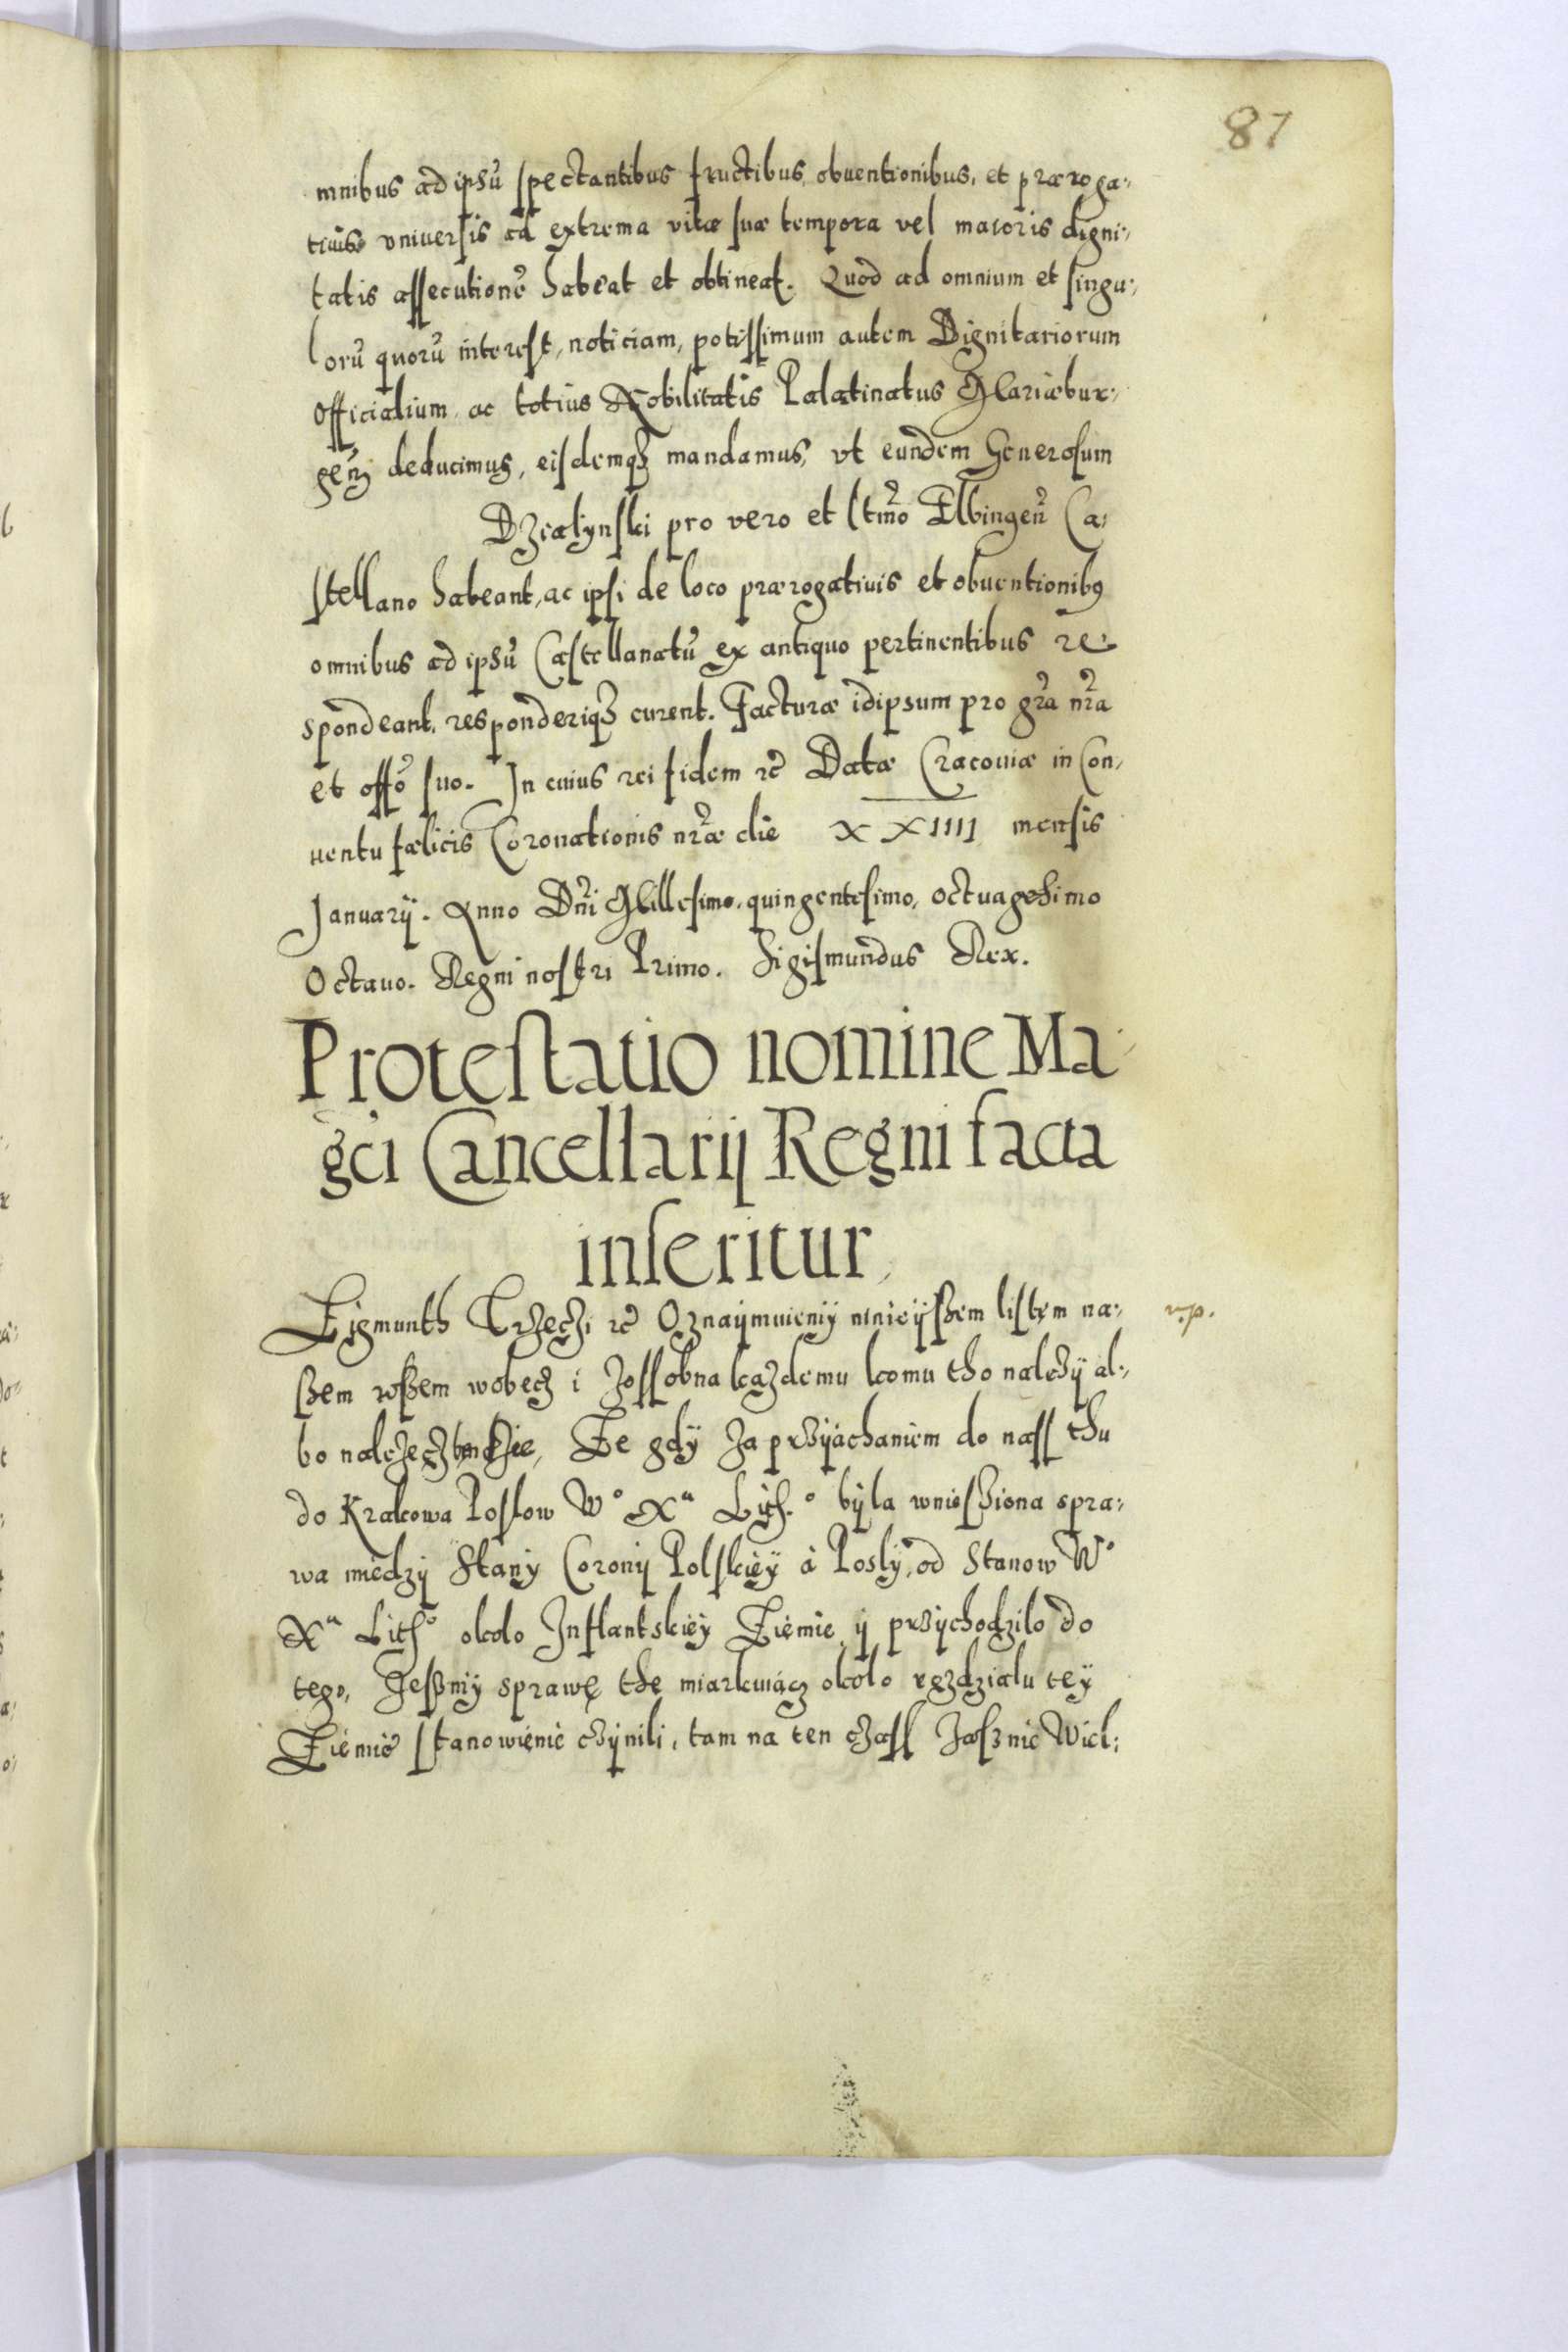 87
mnibus ad ipsũ spectantibus fructibus, obuentionibus, et præroga:
tiuis vniuersis ad extrema vitæ suæ tempora vel maioris digni:
tatis assecutionẽ habeat et obtineat. Quod ad omnium et singu:
lorũ quorũ interest, noticiam, potissimum autem Dignitariorum
Officialium ac totius Nobilitatis Palatinatus Mariæbur:
geñ deducimus, eisdemqȝ mandamus, vt eundem Generosum
Dzialynski pro vero et ltmõ Elbingeñ Ca:
stellano habeant, ac ipsi de loco prærogatiuis et obuentionibꝰ
omnibus ad ipsũ Castellanatũ ex antiquo pertinentibus re
spondeant, responderiqȝ curent. Facturæ idipsum pro gr̃a nr̃a
et offõ suo. In cuius rei fidem ꝛc̃ Datæ Cracouiæ in Con:
uentu fælicis Coronationis nr̃æ die XXIIII mensis
Januarÿ. Anno Dñi Millesimo, quingentesimo, octuagesimo
Octauo. Regni nostri Primo. Sigismundus Rex.
Protestatio nomine Ma
gci Cancellarij Regni facta
inseritur
Zigmunth Trzeczi ꝛc̃ Oznaÿmuiemÿ ninieÿszem listem na:
szem wszem wobecz i zossobna kazdemu komu tho nalezÿ al:
bo nalezecz bendzie, Ze gdÿ za przÿachaniem do nass thu
do Krakowa Poslow Wº Xª Lithº bÿla wniesziona spra:
wa miedzÿ Stanÿ Coronÿ Polskieÿ à Poslÿ, od Stanow Wº
Xª Lithº okolo Inflantskieÿ Ziemie, ÿ przÿchodzilo do
tego, Jeszmÿ sprawę the miarkuiącz okolo rozdzialu teÿ
Ziemie stanowienie czÿnili, tam na ten czass Jasznie Wiel: